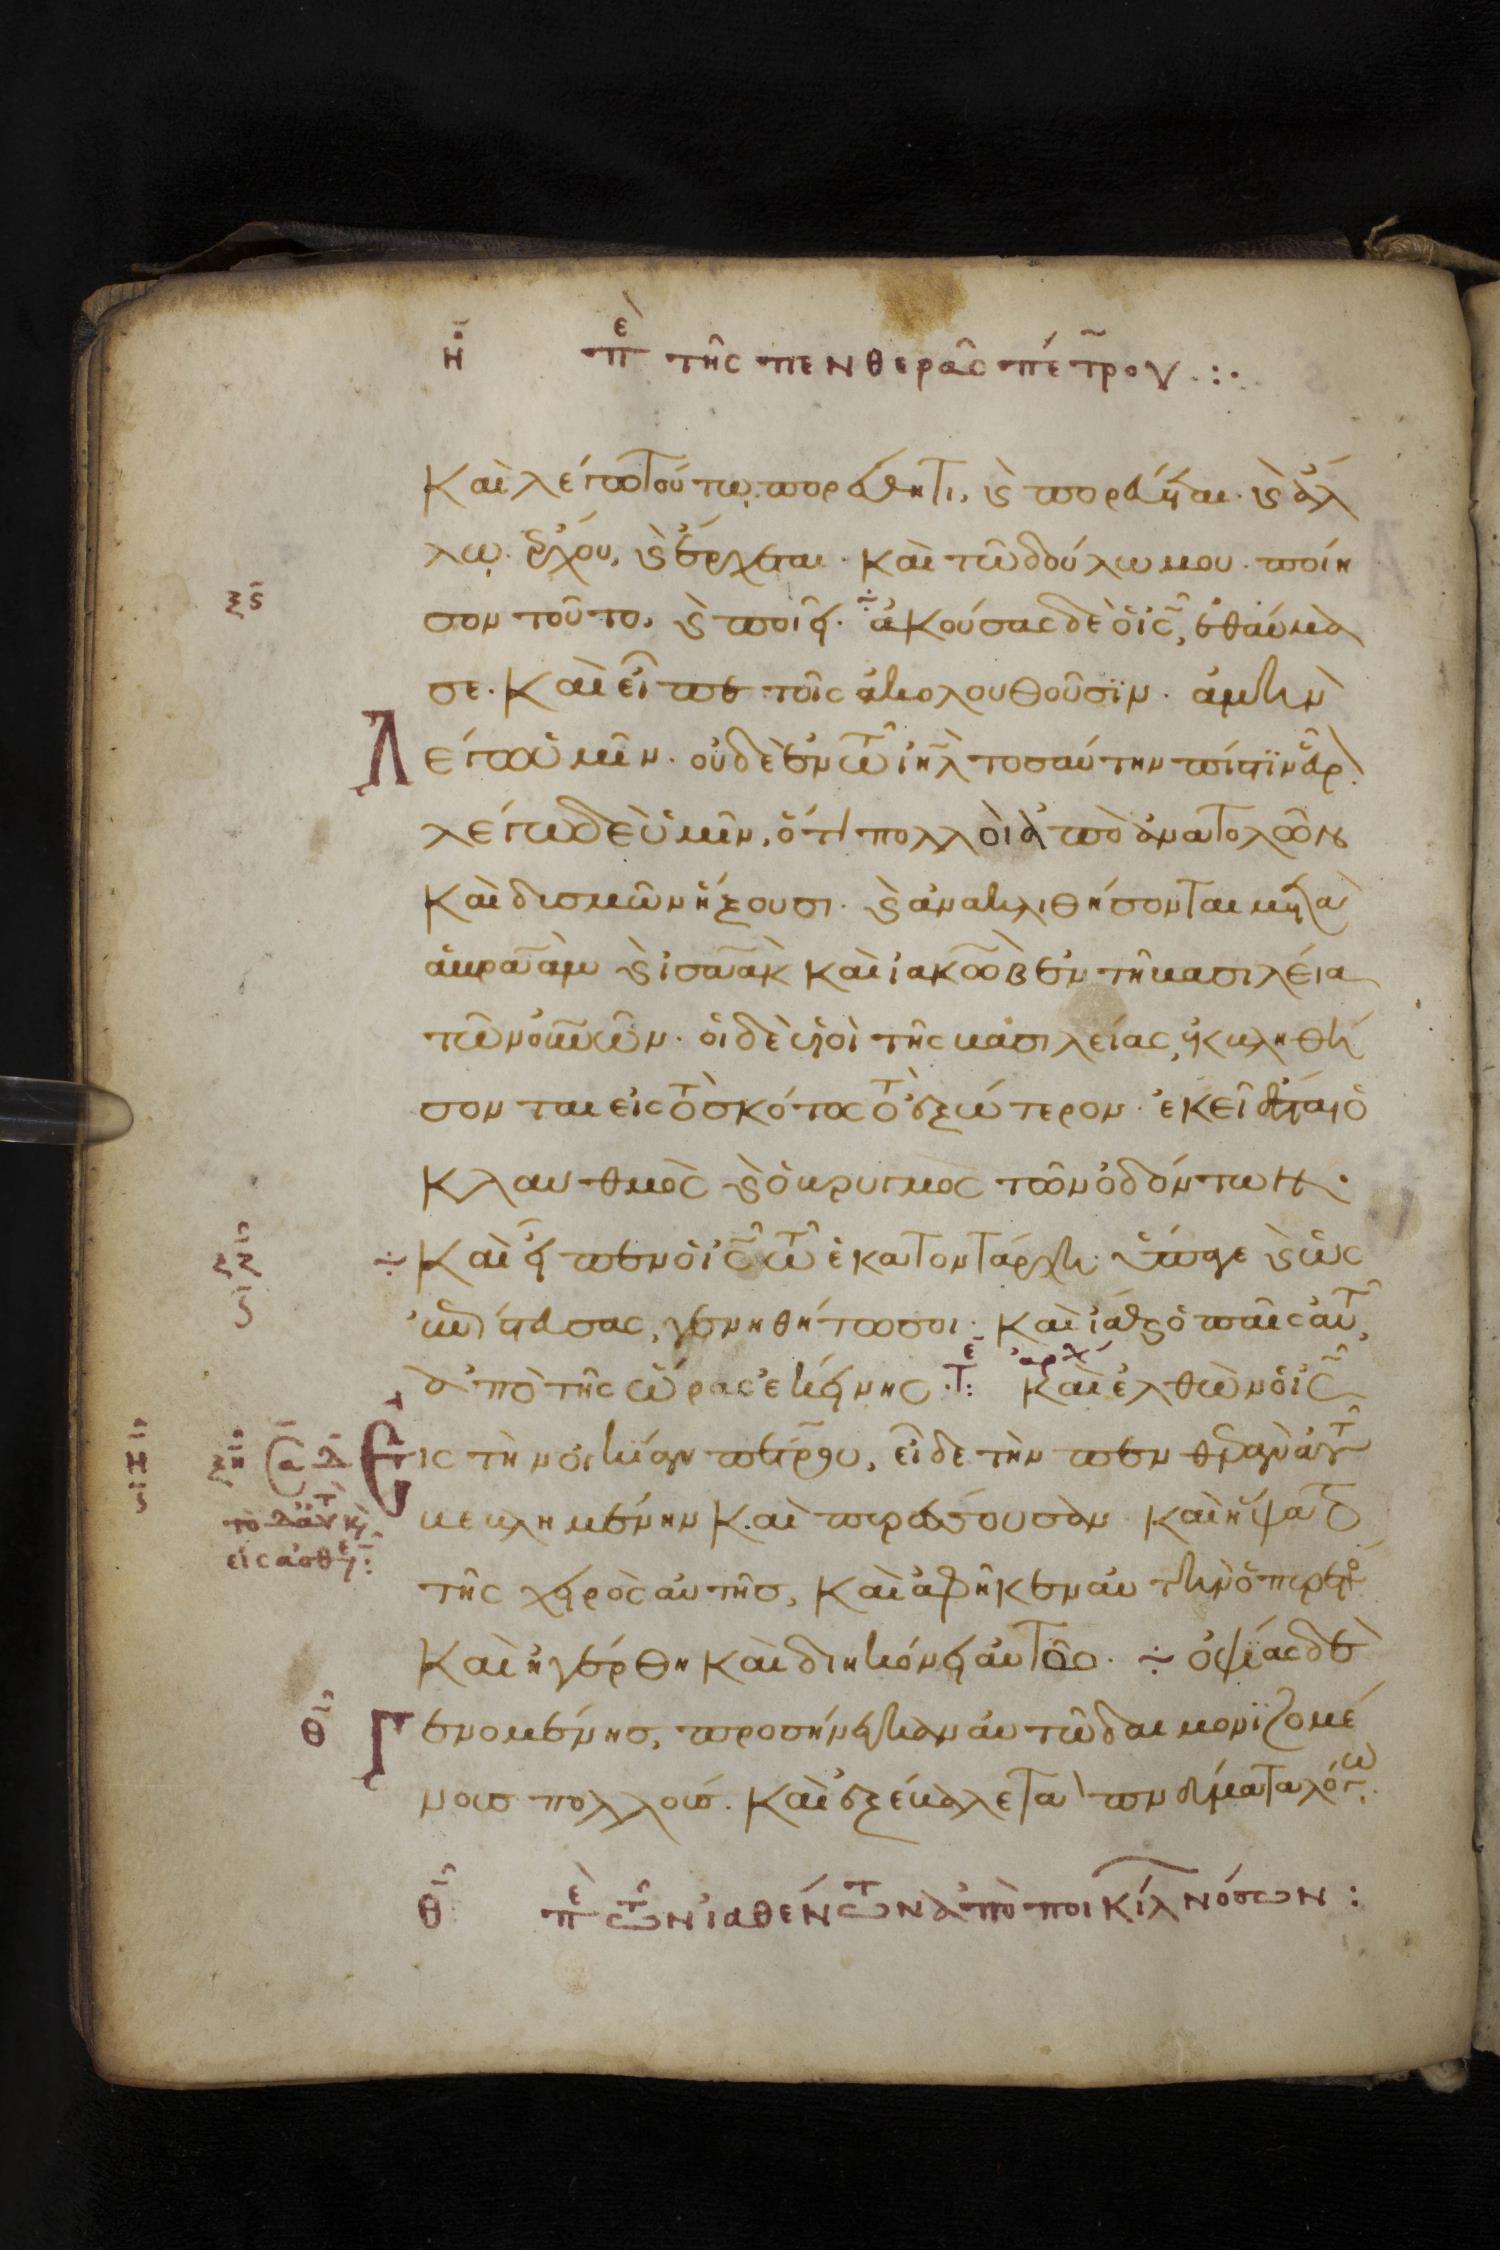 η̄ πε τῆς πενθερᾶς πέτρου .:·
Καὶ λέγω τούτω· πορεύθητι, ϗ πορεύεται· ϗ ἄλ
λω· ἔρχου, ϗ ἔρχεται· καὶ τῶ δούλω μου· ποίη
ξϛ σον τοῦτο, ϗ ποιεῖ· ÷ ἀκούσας δὲ ὁ ις̄, ἐθαύμα
σε· καὶ εἶπε τοῖς ἀκολουθοῦσϊν· ἀμὴν
Λέγω ὑμῖν· οὐδὲ ἐν τῶ ιηλ̄ τοσαύτην πίστϊν εὗρ·
λέγω δὲ ὑμῖν, ὅτι πολλοὶ ἀπὸ ἀνατολῶν
καὶ δυσμῶν ἥξουσι· ϗ ἀνακλιθήσονται μετὰ
ἀβραὰμ ϗ ἰσαὰκ καὶ ἰακὼβ ἐν τῆ βασιλεία
τῶν οὐνῶν· οἱ δὲ υἱοὶ τῆς βασιλείας, ἐκβληθή
σονται εἰς τὸ σκότος τὸ ἐξώτερον· ἐκεῖ ἔσται ὁ
κλαυθμὸς ϗ ὁ βρυγμὸς τῶν ὀδόντων·
ξζ ϛ ÷ Καὶ εἶπεν ὁ ις̄ τῶ ἑκατοντάρχη· ὕπαγε ϗ ὡς
ἐπίστευσας, γενηθήτω σοι· καὶ ἰάθη ὁ παῖς αὐτ,
ἀπὸ τῆς ὥρας ἐκείνης ·τε: ἀρχ Καὶ ἐλθὼν ὁ ις̄
η̄ ϛ ξη Εἰς τὴν οἰκίαν πέτρου, εἶδε τὴν πενθερὰν αὐτ
βεβλημένην καὶ πυρέσσουσαν· καὶ ἥψατο
τῆς χειρὸς αὐτῆς, καὶ ἀφῆκεν αὐτὴν ὁ πυρετὸ
καὶ ἠγέρθη καὶ διηκόνει αὐτῶ· ÷ ὀψίας δὲ
θ̄ Γενομένης, προσήνεγκαν αὐτῶ δαιμονϊζομέ
νους πολλούς· καὶ ἐξέβαλε τὰ πνεύματα λόγω·
θ̄ πε τῶν ἰαθέντων ἀπὸ ποικίλ νόσων :